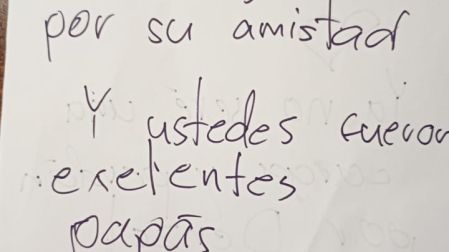 por su amistad
Y ustedes fueron
exelentes
papás